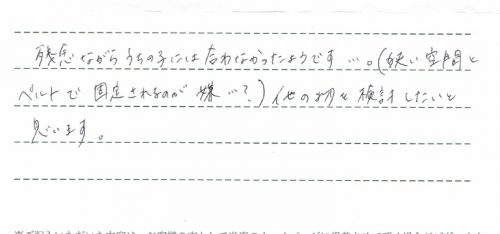 残念ながらうちの子には合わなかったようです…。(狭い空間と
ベルトで固定されるのが嫌…?)他の物を検討したいと
思います。